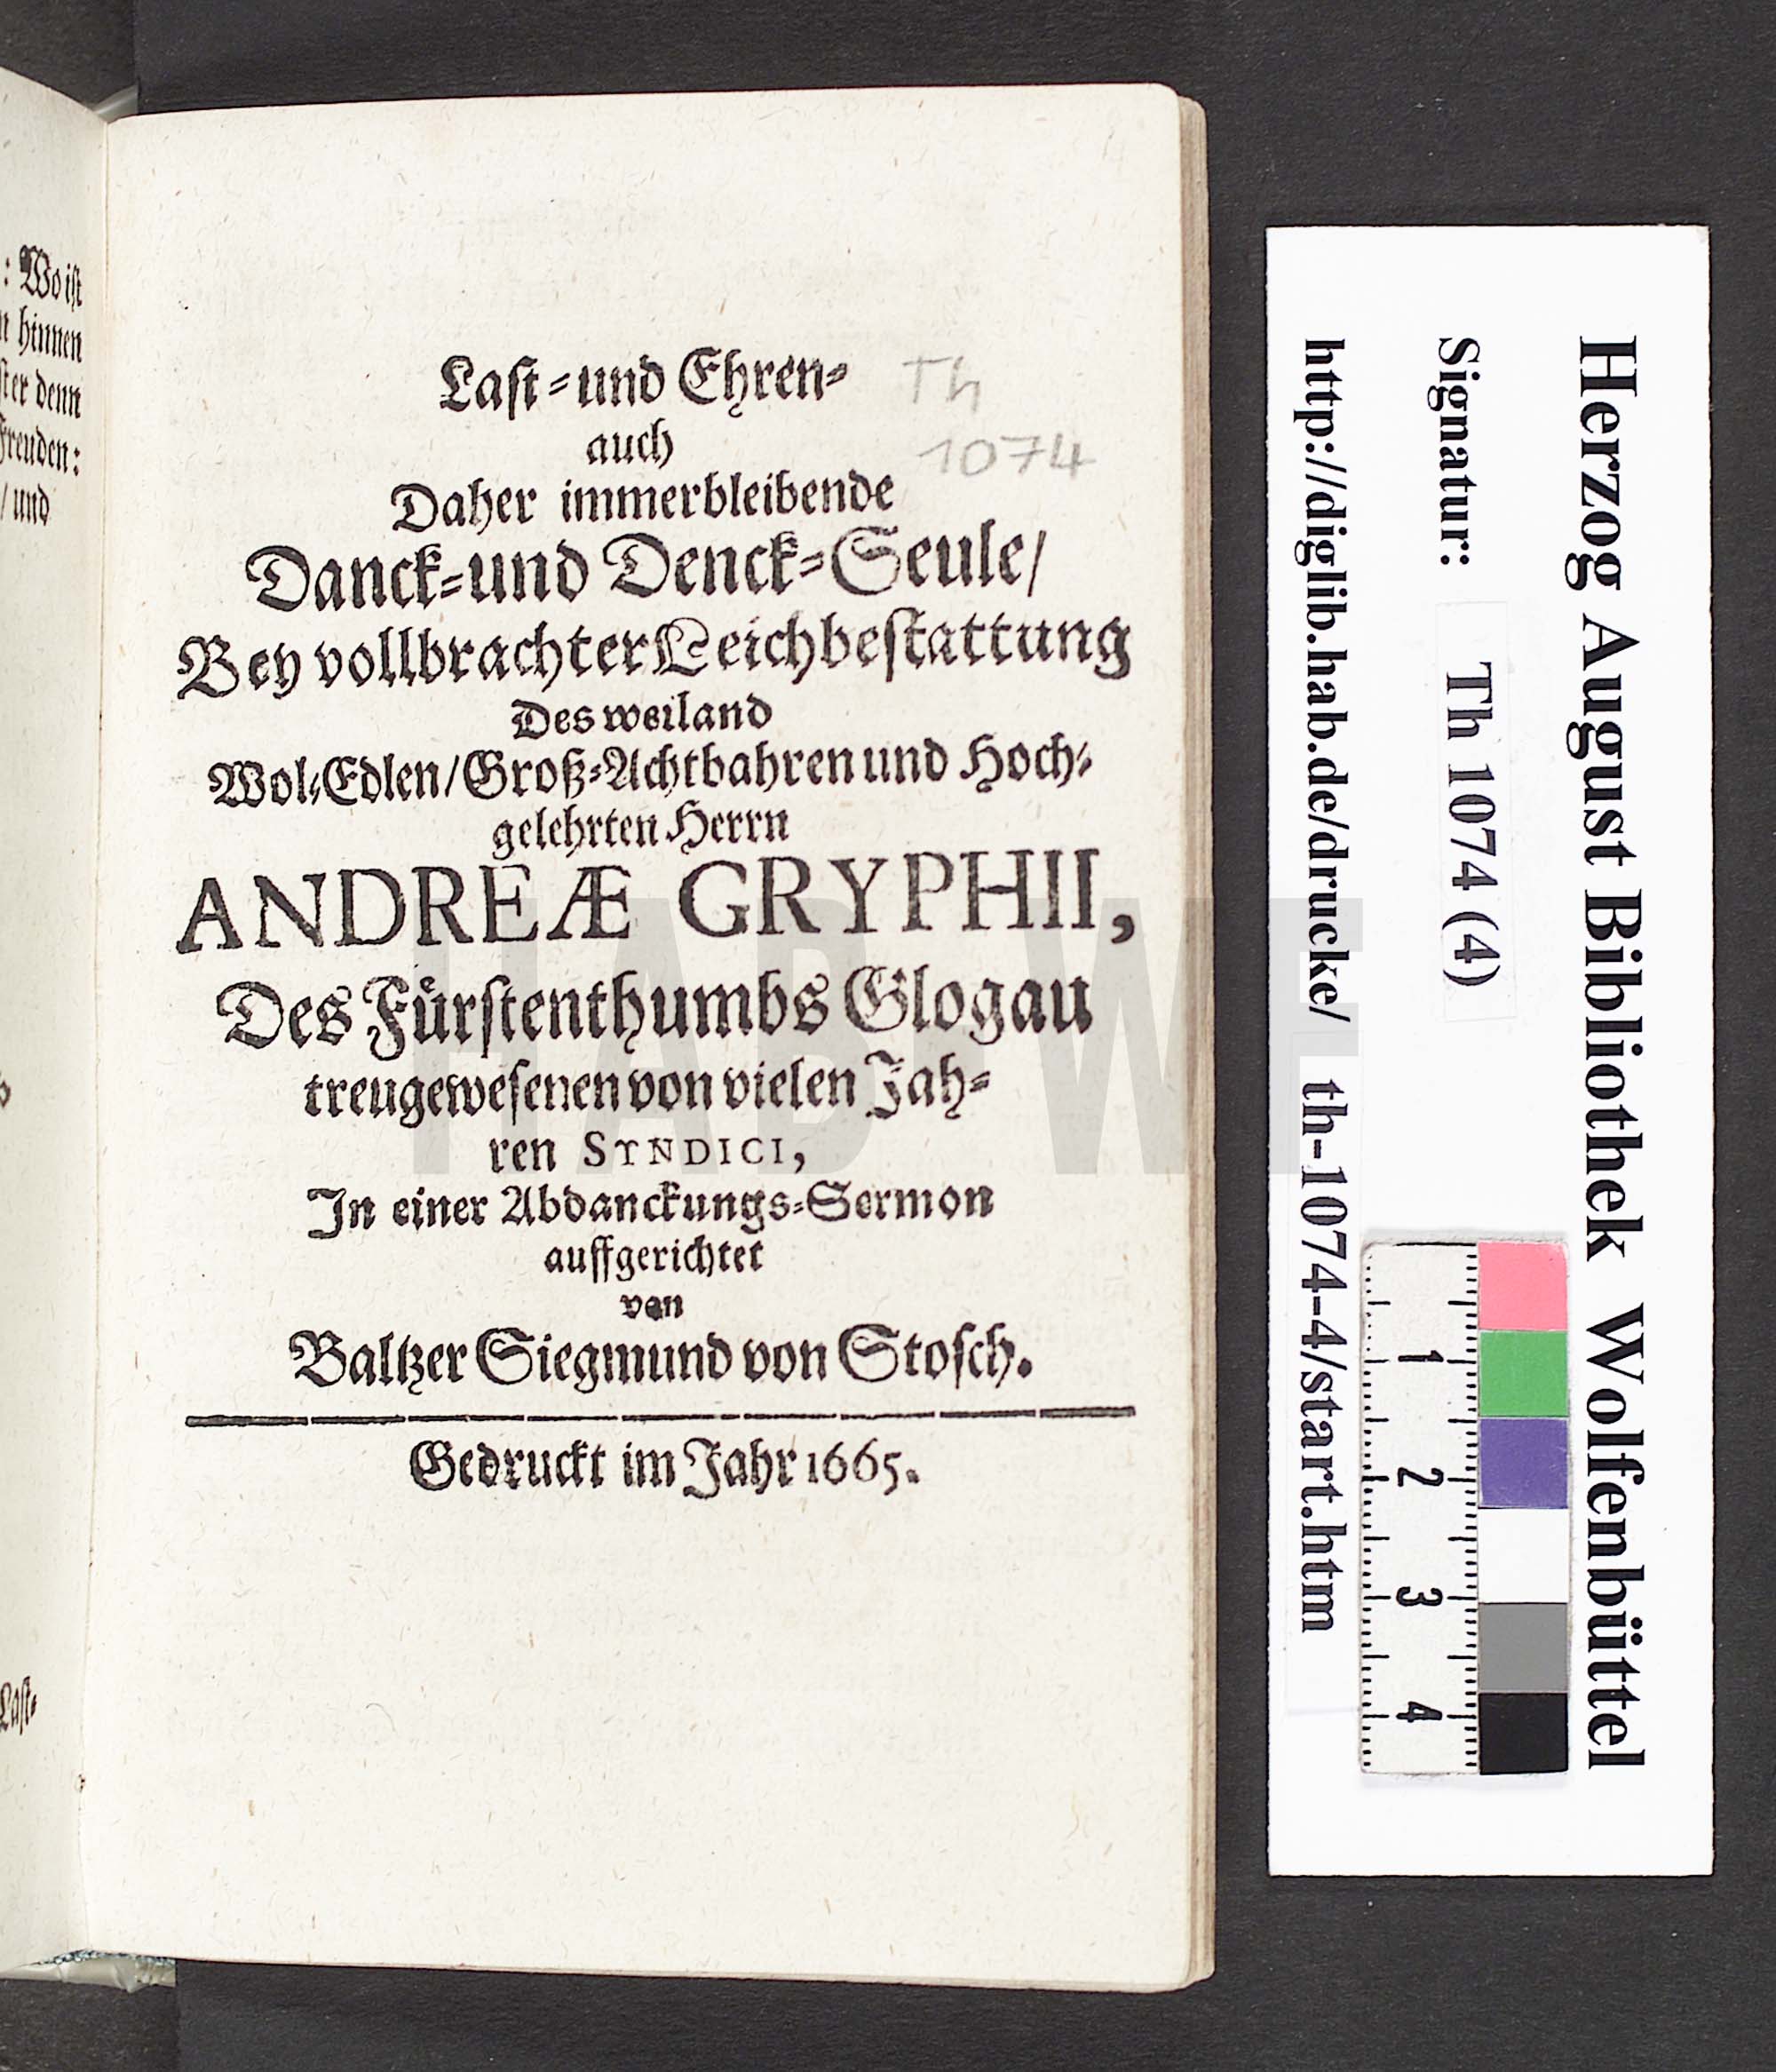 : Wo ist
hinnen
denn
Freuden:
/ und
Last-
Last- und Ehren-
Th
auch
1074
Daher immerbleibende
Danck- und Denck-Seule/
Bey vollbrachter Leichbestattung
Des weiland
Wol-Edlen/Groß-Achtbahren und Hoch-
gelehrten Herrn
ANDREÆ GRYPHII,
Des Fürstenthumbs Glogau
treugewesenen von vielen Jah-
ren SYNDICI,
In einer Abdanckungs-Sermon
auffgerichtet
von
Baltzer Siegmund von Stosch.
Gedruckt im Jahr 1665.
HAB WF
Herzog August Bibliothek Wolfenbüttel
Signatur: Th 1074 (4)
http://diglib.hab.de/drucke/ th-1074-4/start.htm
1
2
3
4